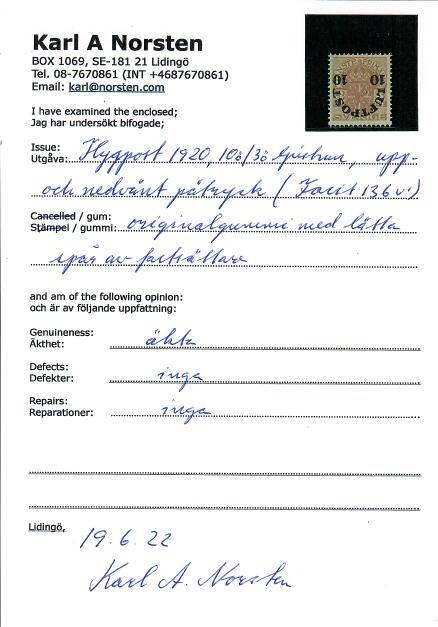 Karl A Norsten
BOX 1069, SE-181 21 Lidingö
Tel. 08-7670861 (INT +4687670861)
Email: karl@norsten.com
I have examined the enclosed;
Jag har undersökt bifogade;
Issue:
Utgåva: Flygpost 1920, 10ö/3ö ljusbrun, upp-
och nedvänt påtryck (Facit 136 v¹)
Cancelled / gum:
Stämpel / gummi: originalgummi med lätta
spår av fastsättare
and am of the following opinion:
och är av följande uppfattning:
Genuineness:
Äkthet: äkta
Defects:
Defekter: inga
Repairs:
Reparationer: inga
Lidingö,
19.6.22
Karl A. Norsten
10 10
LUFTPOST
SVERIGE